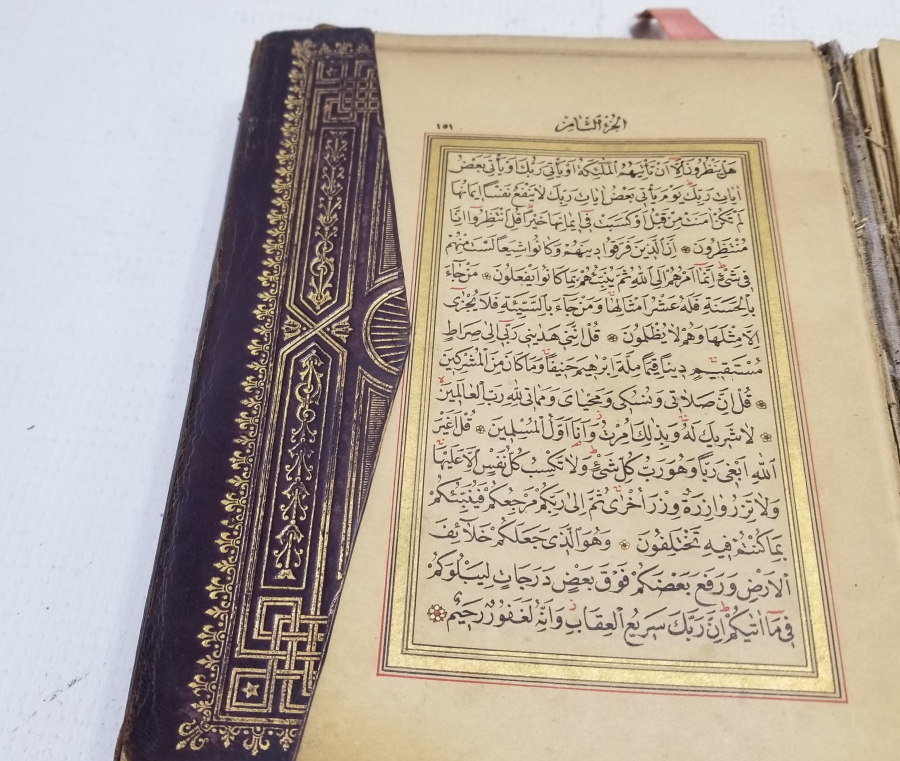 الجزء الثامن
١٥١
هَلْ يَنْظُرُونَ اِلَّٓا اَنْ تَأْتِيَهُمُ الْمَلٰٓئِكَةُ اَوْ يَأْتِيَ رَبُّكَ اَوْ يَأْتِيَ بَعْضُ
اٰيَاتِ رَبِّكَ يَوْمَ يَأْتِي بَعْضُ اٰيَاتِ رَبِّكَ لَا يَنْفَعُ نَفْسًا اِيمَانُهَا
لَمْ تَكُنْ اٰمَنَتْ مِنْ قَبْلُ اَوْ كَسَبَتْ فِي اِيمَانِهَا خَيْرًا قُلِ انْتَظِرُوا اِنَّا
مُنْتَظِرُونَ اِنَّ الَّذِينَ فَرَّقُوا دِينَهُمْ وَكَانُوا شِيَعًا لَسْتَ مِنْهُمْ
فِي شَيْءٍ اِنَّمَٓا اَمْرُهُمْ اِلَى اللّٰهِ ثُمَّ يُنَبِّئُهُمْ بِمَا كَانُوا يَفْعَلُونَ مَنْ جَٓاءَ
بِالْحَسَنَةِ فَلَهُ عَشْرُ اَمْثَالِهَا وَمَنْ جَٓاءَ بِالسَّيِّئَةِ فَلَا يُجْزٰٓى
اِلَّا مِثْلَهَا وَهُمْ لَا يُظْلَمُونَ قُلْ اِنَّنِي هَدٰينِي رَبِّٓي اِلٰى صِرَاطٍ
مُسْتَقِيمٍ دِينًا قِيَمًا مِلَّةَ اِبْرٰهِيمَ حَنِيفًا وَمَا كَانَ مِنَ الْمُشْرِكِينَ
قُلْ اِنَّ صَلَاتِي وَنُسُكِي وَمَحْيَايَ وَمَمَاتِي لِلّٰهِ رَبِّ الْعَالَمِينَ
لَا شَرِيكَ لَهُ وَبِذٰلِكَ اُمِرْتُ وَاَنَا اَوَّلُ الْمُسْلِمِينَ قُلْ اَغَيْرَ
اللّٰهِ اَبْغِي رَبًّا وَهُوَ رَبُّ كُلِّ شَيْءٍ وَلَا تَكْسِبُ كُلُّ نَفْسٍ اِلَّا عَلَيْهَا
وَلَا تَزِرُ وَازِرَةٌ وِزْرَ اُخْرٰى ثُمَّ اِلٰى رَبِّكُمْ مَرْجِعُكُمْ فَيُنَبِّئُكُمْ
بِمَا كُنْتُمْ فِيهِ تَخْتَلِفُونَ وَهُوَ الَّذِي جَعَلَكُمْ خَلَٓائِفَ
الْاَرْضِ وَرَفَعَ بَعْضَكُمْ فَوْقَ بَعْضٍ دَرَجَاتٍ لِيَبْلُوَكُمْ
فِي مَٓا اٰتٰيكُمْ اِنَّ رَبَّكَ سَرِيعُ الْعِقَابِ وَاِنَّهُ لَغَفُورٌ رَحِيمٌ